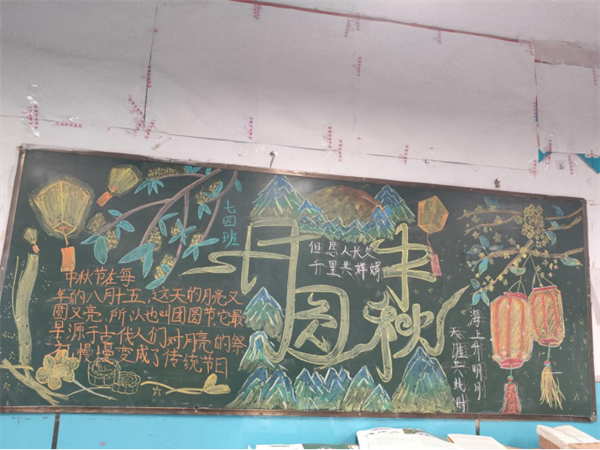 七四班
中秋节在每
年的八月十五,这天的月亮又
圆又亮,所以也叫团圆节它最
早源于古代人们对月亮的祭
祀,慢慢变成了传统节日
月圆
中秋
但愿人长久
千里共婵娟
海上升明月
天涯共此时